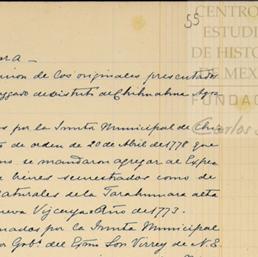 55
CENTRO
ESTUDI
DE HISTO
DE MÉXI
FUNDAC
Carlos S
ora -
de los originales presentados
Juzgado de distrito de Chihuahua Ago
por la Junta Municipal de Chi
de orden de 20 de Abril de 1778 que
se mandaron agregar al Expe
bienes secuestrados como de
naturales de la Tarahumara alta
nueva Vizcaya Año de 1773.
por la Junta Municipal
Gobr. del Exmo Sor Virrey de N. E.